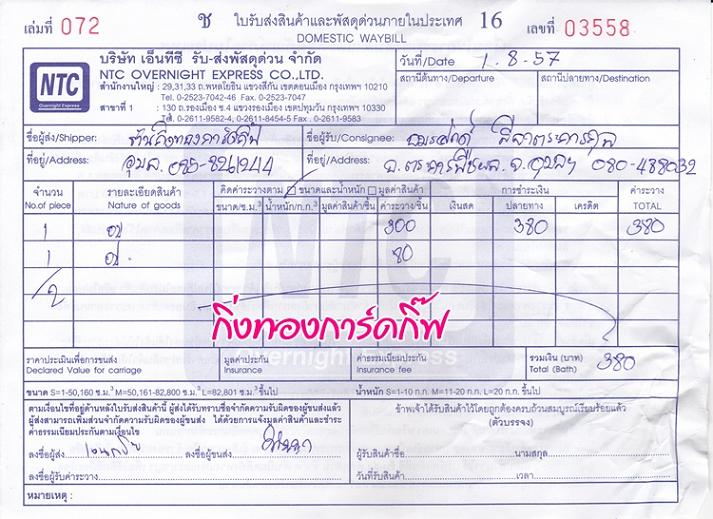 เล่มที่ 072 ช ใบรับส่งสินค้าและพัสดุด่วนภายในประเทศ 16 เลขที่ 03558
DOMESTIC WAYBILL
NTC
Overnight Express
บริษัท เอ็นทีซี รับ-ส่งพัสดุด่วน จำกัด
NTC OVERNIGHT EXPRESS CO.,LTD.
สำนักงานใหญ่ : 29,31,33 ถ.พหลโยธิน แขวงสีกัน เขตดอนเมือง กรุงเทพฯ 10210
Tel. 0-2523-7042-46 Fax. 0-2523-7047
สาขาที่ 1 : 130 ถ.รองเมือง ซ.4 แขวงรองเมือง เขตปทุมวัน กรุงเทพฯ 10330
Tel. 0-2611-9582-4, 0-2611-8454-5 Fax. 0-2611-9583
วันที่/Date 1.8-57
สถานีต้นทาง/Departure สถานีปลายทาง/Destination
ชื่อผู้ส่ง/Shipper: ร้านกิ่งทองการ์ดกิ๊ฟ ชื่อผู้รับ/Consignee:
ที่อยู่/Address: อุบล. ที่อยู่/Address: อ.ตระการพืชผล จ.อุบลฯ
จำนวน รายละเอียดสินค้า คิดค่าระวางตาม ขนาดและน้ำหนัก มูลค่าสินค้า การชำระเงิน ค่าระวาง
No.of piece Nature of goods ขนาด/ซ.ม.³ น้ำหนัก/ก.ก.³ มูลค่าสินค้า/ชิ้น ค่าระวาง/ชิ้น เงินสด ปลายทาง เครดิต TOTAL
1 300 380 380
1 80
/2
กิ่งทองการ์ดกิ๊ฟ
NTC
Overnight Express
ราคาประเมินเพื่อการขนส่ง มูลค่าประกัน ค่าธรรมเนียมประกัน รวมเงิน (บาท) 380
Declared Value for carriage Insurance Insurance fee Total (Bath)
ขนาด S=1-50,160 ซ.ม.³ M=50,161-82,800 ซ.ม.³ L=82,801 ซ.ม.³ ขึ้นไป น้ำหนัก S=1-10 ก.ก. M=11-20 ก.ก. L=20 ก.ก. ขึ้นไป
ตามเงื่อนไขที่อยู่ด้านหลังใบรับส่งสินค้านี้ ผู้ส่งได้รับทราบข้อจำกัดความรับผิดของผู้ขนส่งแล้ว
ผู้ส่งสามารถเพิ่มส่วนจำกัดความรับผิดของผู้ขนส่ง ได้ด้วยการแจ้งมูลค่าสินค้าและชำระ
ค่าธรรมเนียมประกันตามเงื่อนไข
ข้าพเจ้าได้รับสินค้าไว้โดยถูกต้องครบถ้วนสมบูรณ์เรียบร้อยแล้ว
(ตัวบรรจง)
ลงชื่อผู้ส่ง ลงชื่อผู้ขนส่ง ผู้รับสินค้าชื่อ นามสกุล
ลงชื่อผู้รับค่าระวาง วันที่รับสินค้า เวลา
หมายเหตุ :